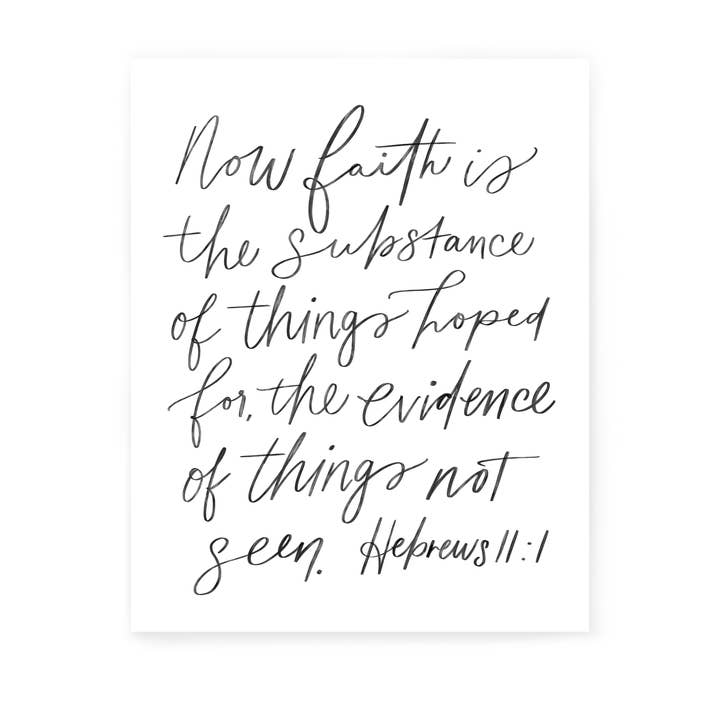 Now faith is
the substance
of things hoped
for, the evidence
of things not
seen. Hebrews 11:1